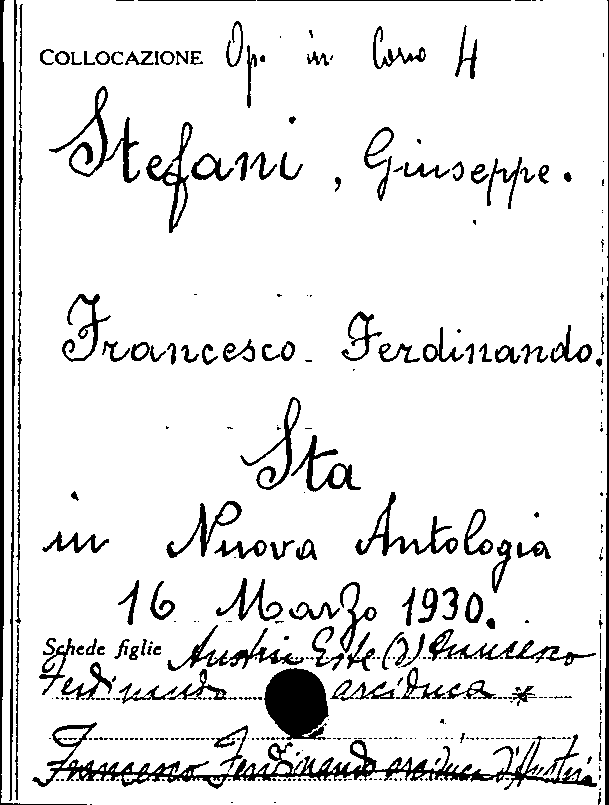 COLLOCAZIONE Op. in Corso 4
Stefani, Giuseppe.
Francesco Ferdinando.
Sta
in Nuova Antologia
16 Marzo 1930.
Schede figlie Austria Este (d') Francesco
Ferdinando arciduca *
Francesco Ferdinando arciduca d'Austria